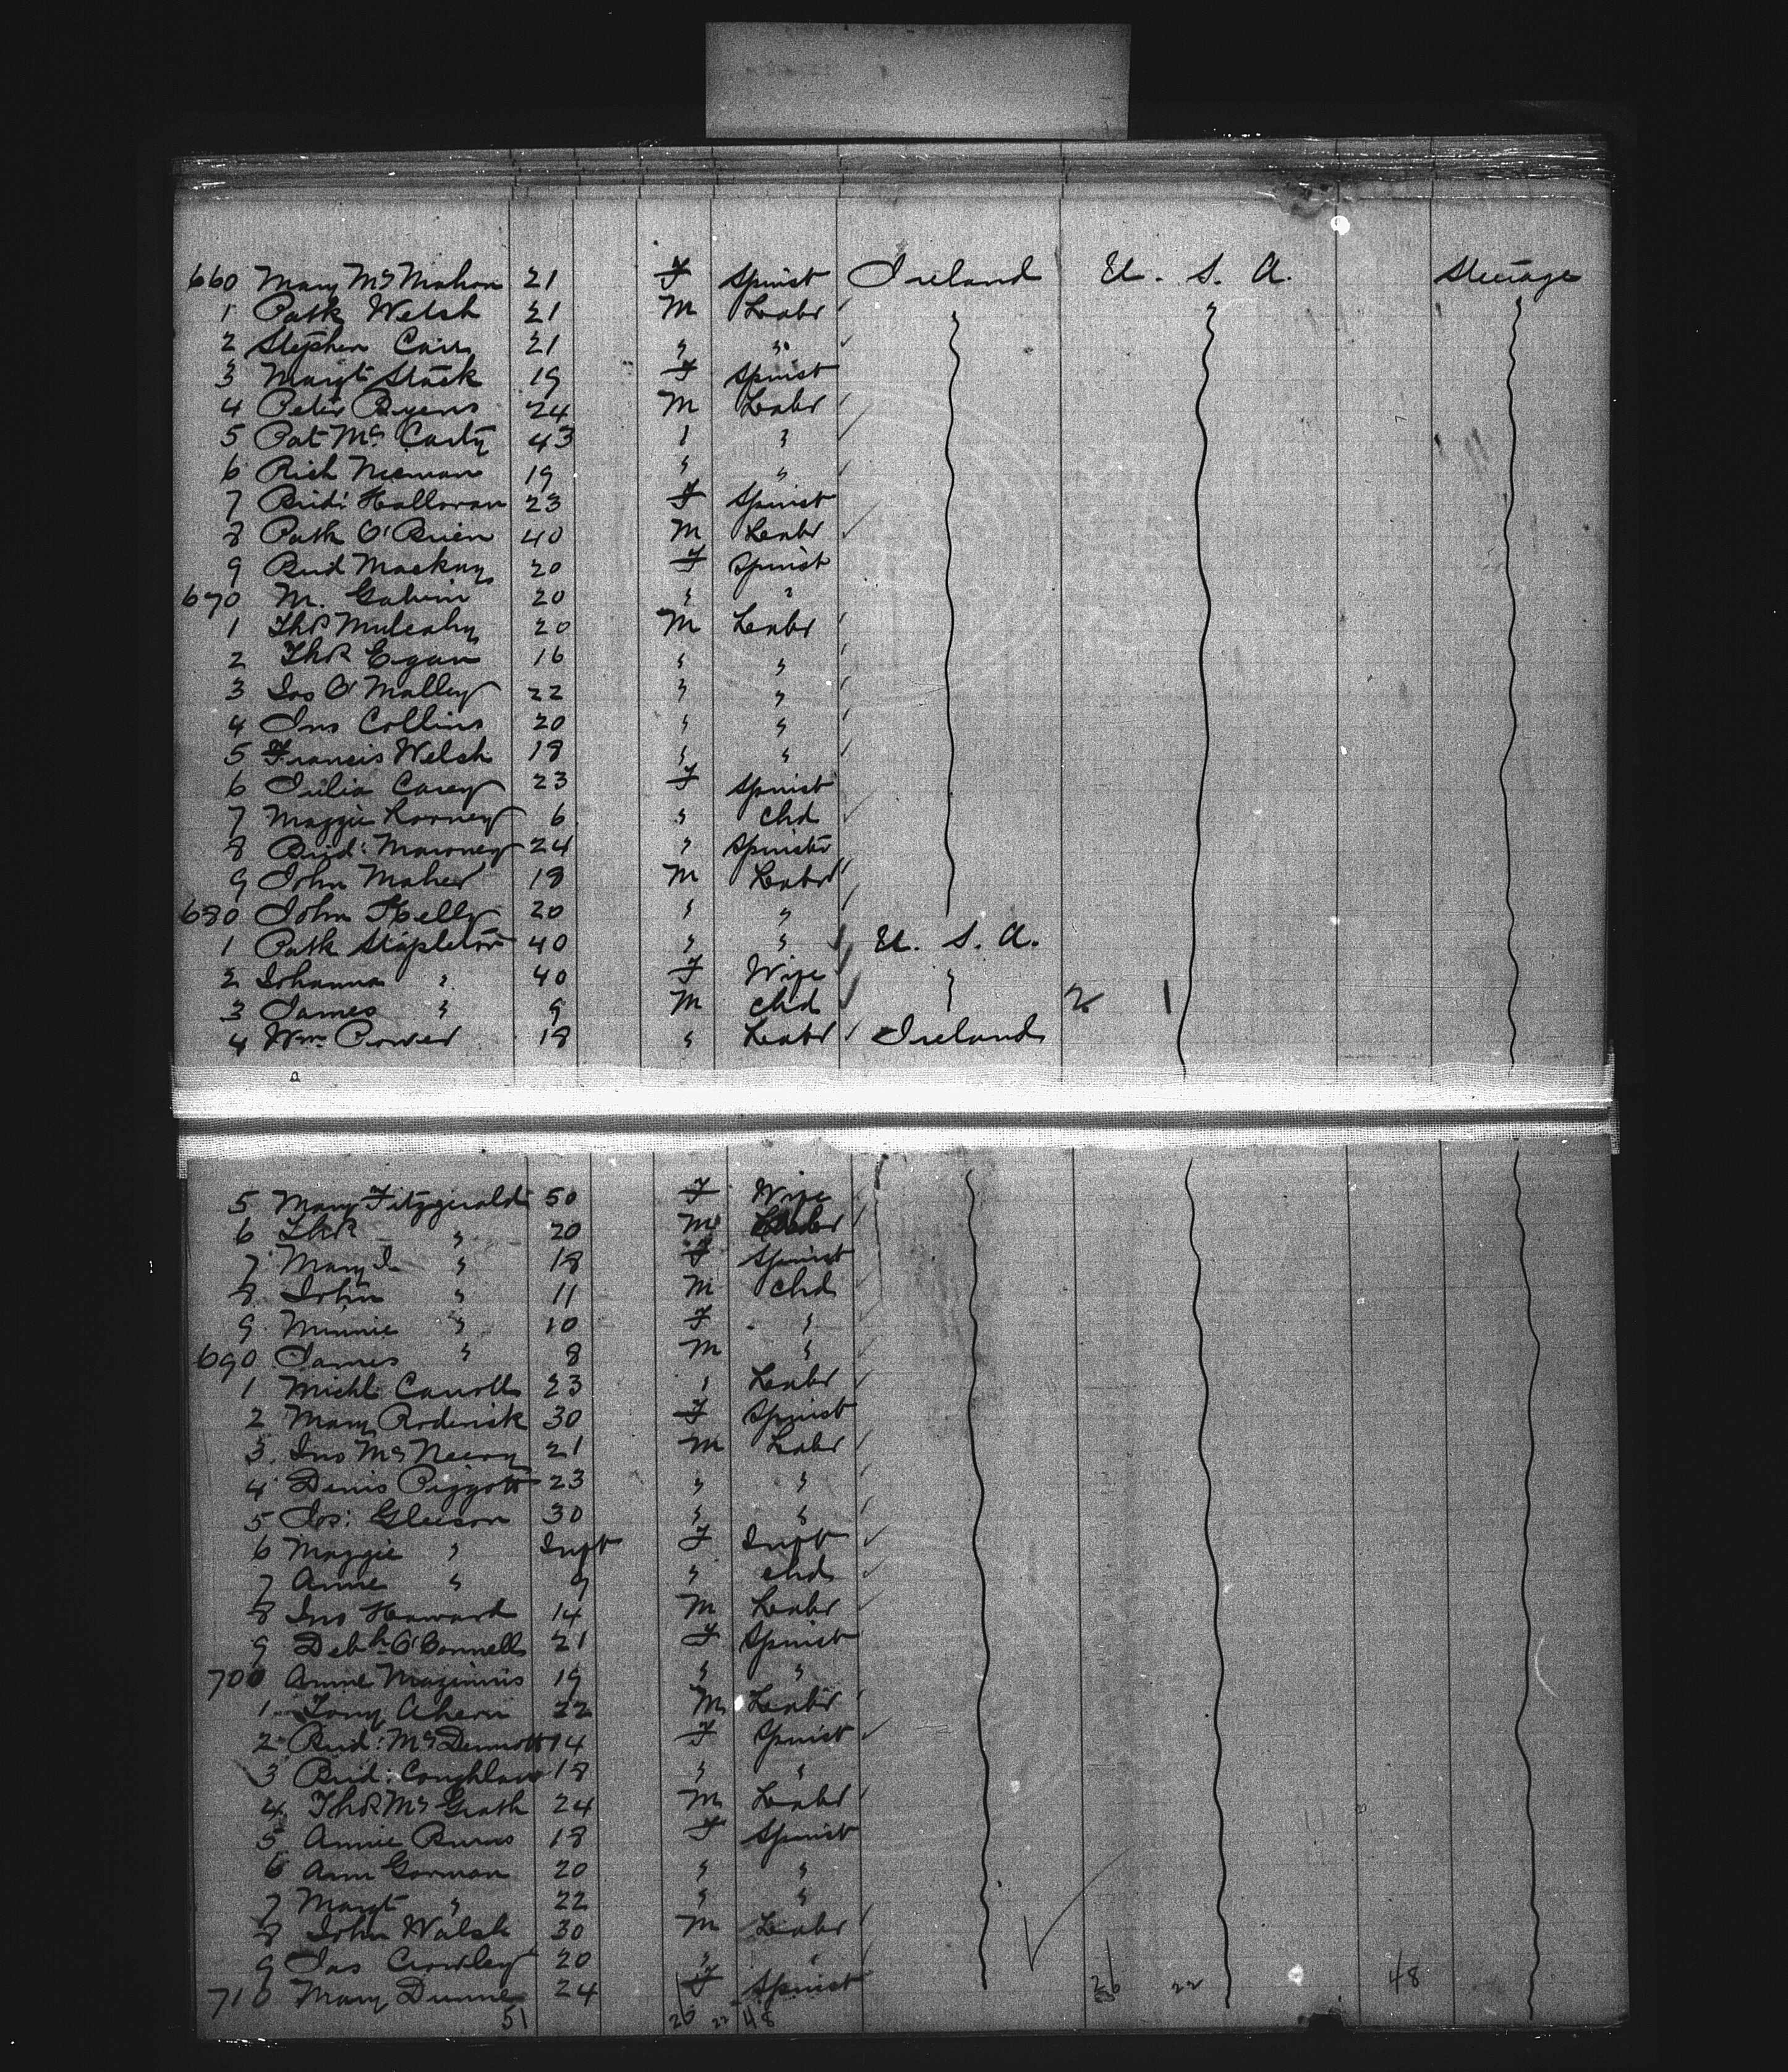 660 Mary McMahon 21 F Spinst Ireland U. S. A. Steerage
1 Patk Welsh 21 M Labr
2 Stephen Carr 21 " "
3 Margt Stack 19 F Spinst
4 Peter Byens 24 M Labr
5 Pat Mc Carty 43 " "
6 Rich 19 " "
7 Brid: Halloran 23 F Spinst
8 Patk O'Brien 40 M Labr
9 Brid Mackey 20 F Spinst
670 M. Galvin 20 " "
1 Thos Mulcahy 20 M Labr
2 Thos Egan 16 " "
3 Jas O'Malley 22 " "
4 Jno Collins 20 " "
5 Francis Welsh 18 " "
6 Julia Carey 23 F Spinst
7 Maggie 6 " Chd
8 Brid: Maroney 24 " Spinstr
9 John Maher 18 M Labr
680 John Kelly 20 " "
1 Patk Stapleton 40 " " U. S. A.
2 Johanna " 40 F Wife "
3 James " 9 M Chd 2 1
4 Wm Power 18 " Labr Ireland
5 Mary Fitzgerald 50 F Wife
6 Thos " 20 M Labr
7 Mary J " 18 F Spinst
8 John " 11 M Chd
9 Minnie " 10 F "
690 James " 8 M "
1 Michl Carroll 23 " Labr
2 Mary Roderick 30 F Spinst
3 Jno Mc 21 M Labr
4 Denis Piggott 23 " "
5 Jos: Gleeson 30 " "
6 Maggie " Inft F Inft
7 Annie " 9 " chd
8 Jno Howard 14 M Labr
9 Debh O'Connell 21 F Spinst
700 Annie Maginnis 19 " "
1 Tony Ahern 22 M Labr
2 Brid: McDermott 14 F Spinst
3 Brid: Coughlan 18 " "
4 Thos McGrath 24 M Labr
5 Annie Burns 18 F Spinst
6 Ann Gorman 20 " "
7 Margt " 22 " "
8 John Walsh 30 M Labr
9 Jas Crowley 20 " "
710 Mary Dunne 24 F Spinst 26 22 48
51 26 22 48